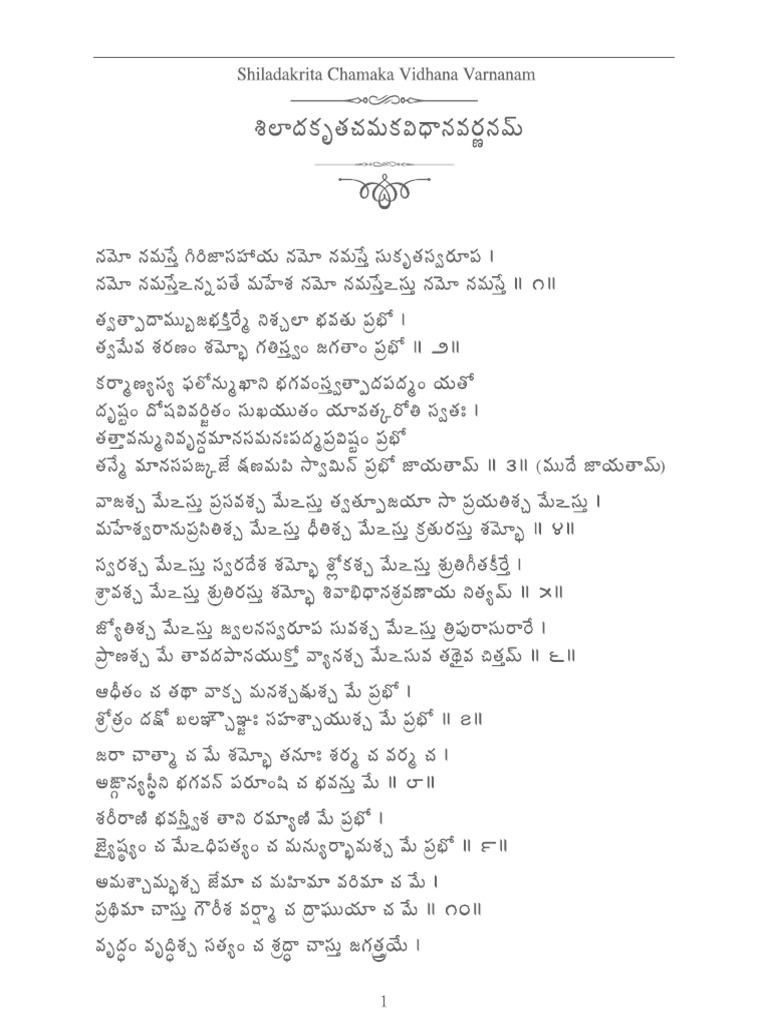 Shiladakrita Chamaka Vidhana Varnanam
శిలాదకృతచమకవిధానవర్ణనమ్
నమో నమస్తే గిరిజాసహాయ నమో నమస్తే సుకృతస్వరూప ।
నమో నమస్తేఽన్నపతే మహేశ నమో నమస్తేఽస్తు నమో నమస్తే ॥ ౧॥
త్వత్పాదామ్బుజభక్తిర్మే నిశ్చలా భవతు ప్రభో ।
త్వమేవ శరణం శమ్భో గతిస్త్వం జగతాం ప్రభో ॥ ౨॥
కర్మాణ్యస్య ఫలోన్ముఖాని భగవంస్త్వత్పాదపద్మం యతో
దృష్టం దోషవివర్జితం సుఖయుతం యావత్కరోతి స్వతః ।
తత్తావన్మునివృన్దమానసమనఃపద్మప్రవిష్టం ప్రభో
తన్మే మానసపఙ్కజే క్షణమపి స్వామిన్ ప్రభో జాయతామ్ ॥ ౩॥ (ముదే జాయతామ్)
వాజశ్చ మేఽస్తు ప్రసవశ్చ మేఽస్తు త్వత్పూజయా సా ప్రయతిశ్చ మేఽస్తు ।
మహేశ్వరానుప్రసితిశ్చ మేఽస్తు ధీతిశ్చ మేఽస్తు క్రతురస్తు శమ్భో ॥ ౪॥
స్వరశ్చ మేఽస్తు స్వరదేశ శమ్భో శ్లోకశ్చ మేఽస్తు శ్రుతిగీతకీర్తే ।
శ్రావశ్చ మేఽస్తు శ్రుతిరస్తు శమ్భో శివాభిధానశ్రవణాయ నిత్యమ్ ॥ ౫॥
జ్యోతిశ్చ మేఽస్తు జ్వలనస్వరూప సువశ్చ మేఽస్తు త్రిపురాసురారే ।
ప్రాణశ్చ మే తావదపానయుక్తో వ్యానశ్చ మేఽసువ తథైవ చిత్తమ్ ॥ ౬॥
ఆధీతం చ తథా వాక్చ మనశ్చక్షుశ్చ మే ప్రభో ।
శ్రోత్రం దక్షో బలఞ్చౌఞ్జః సహశ్చాయుశ్చ మే ప్రభో ॥ ౭॥
జరా చాత్మా చ మే శమ్భో తనూః శర్మ చ వర్మ చ ।
అఙ్గాన్యస్థీని భగవన్ పరూంషి చ భవన్తు మే ॥ ౮॥
శరీరాణి భవన్త్వీశ తాని రమ్యాణి మే ప్రభో ।
జ్యైష్ఠ్యం చ మేఽధిపత్యం చ మన్యుర్భామశ్చ మే ప్రభో ॥ ౯॥
అమశ్చామ్భశ్చ జేమా చ మహిమా వరిమా చ మే ।
ప్రథిమా చాస్తు గౌరీశ వర్ష్మా చ ద్రాఘుయా చ మే ॥ ౧౦॥
వృద్ధం వృద్ధిశ్చ సత్యం చ శ్రద్ధా చాస్తు జగత్త్రయే ।
1